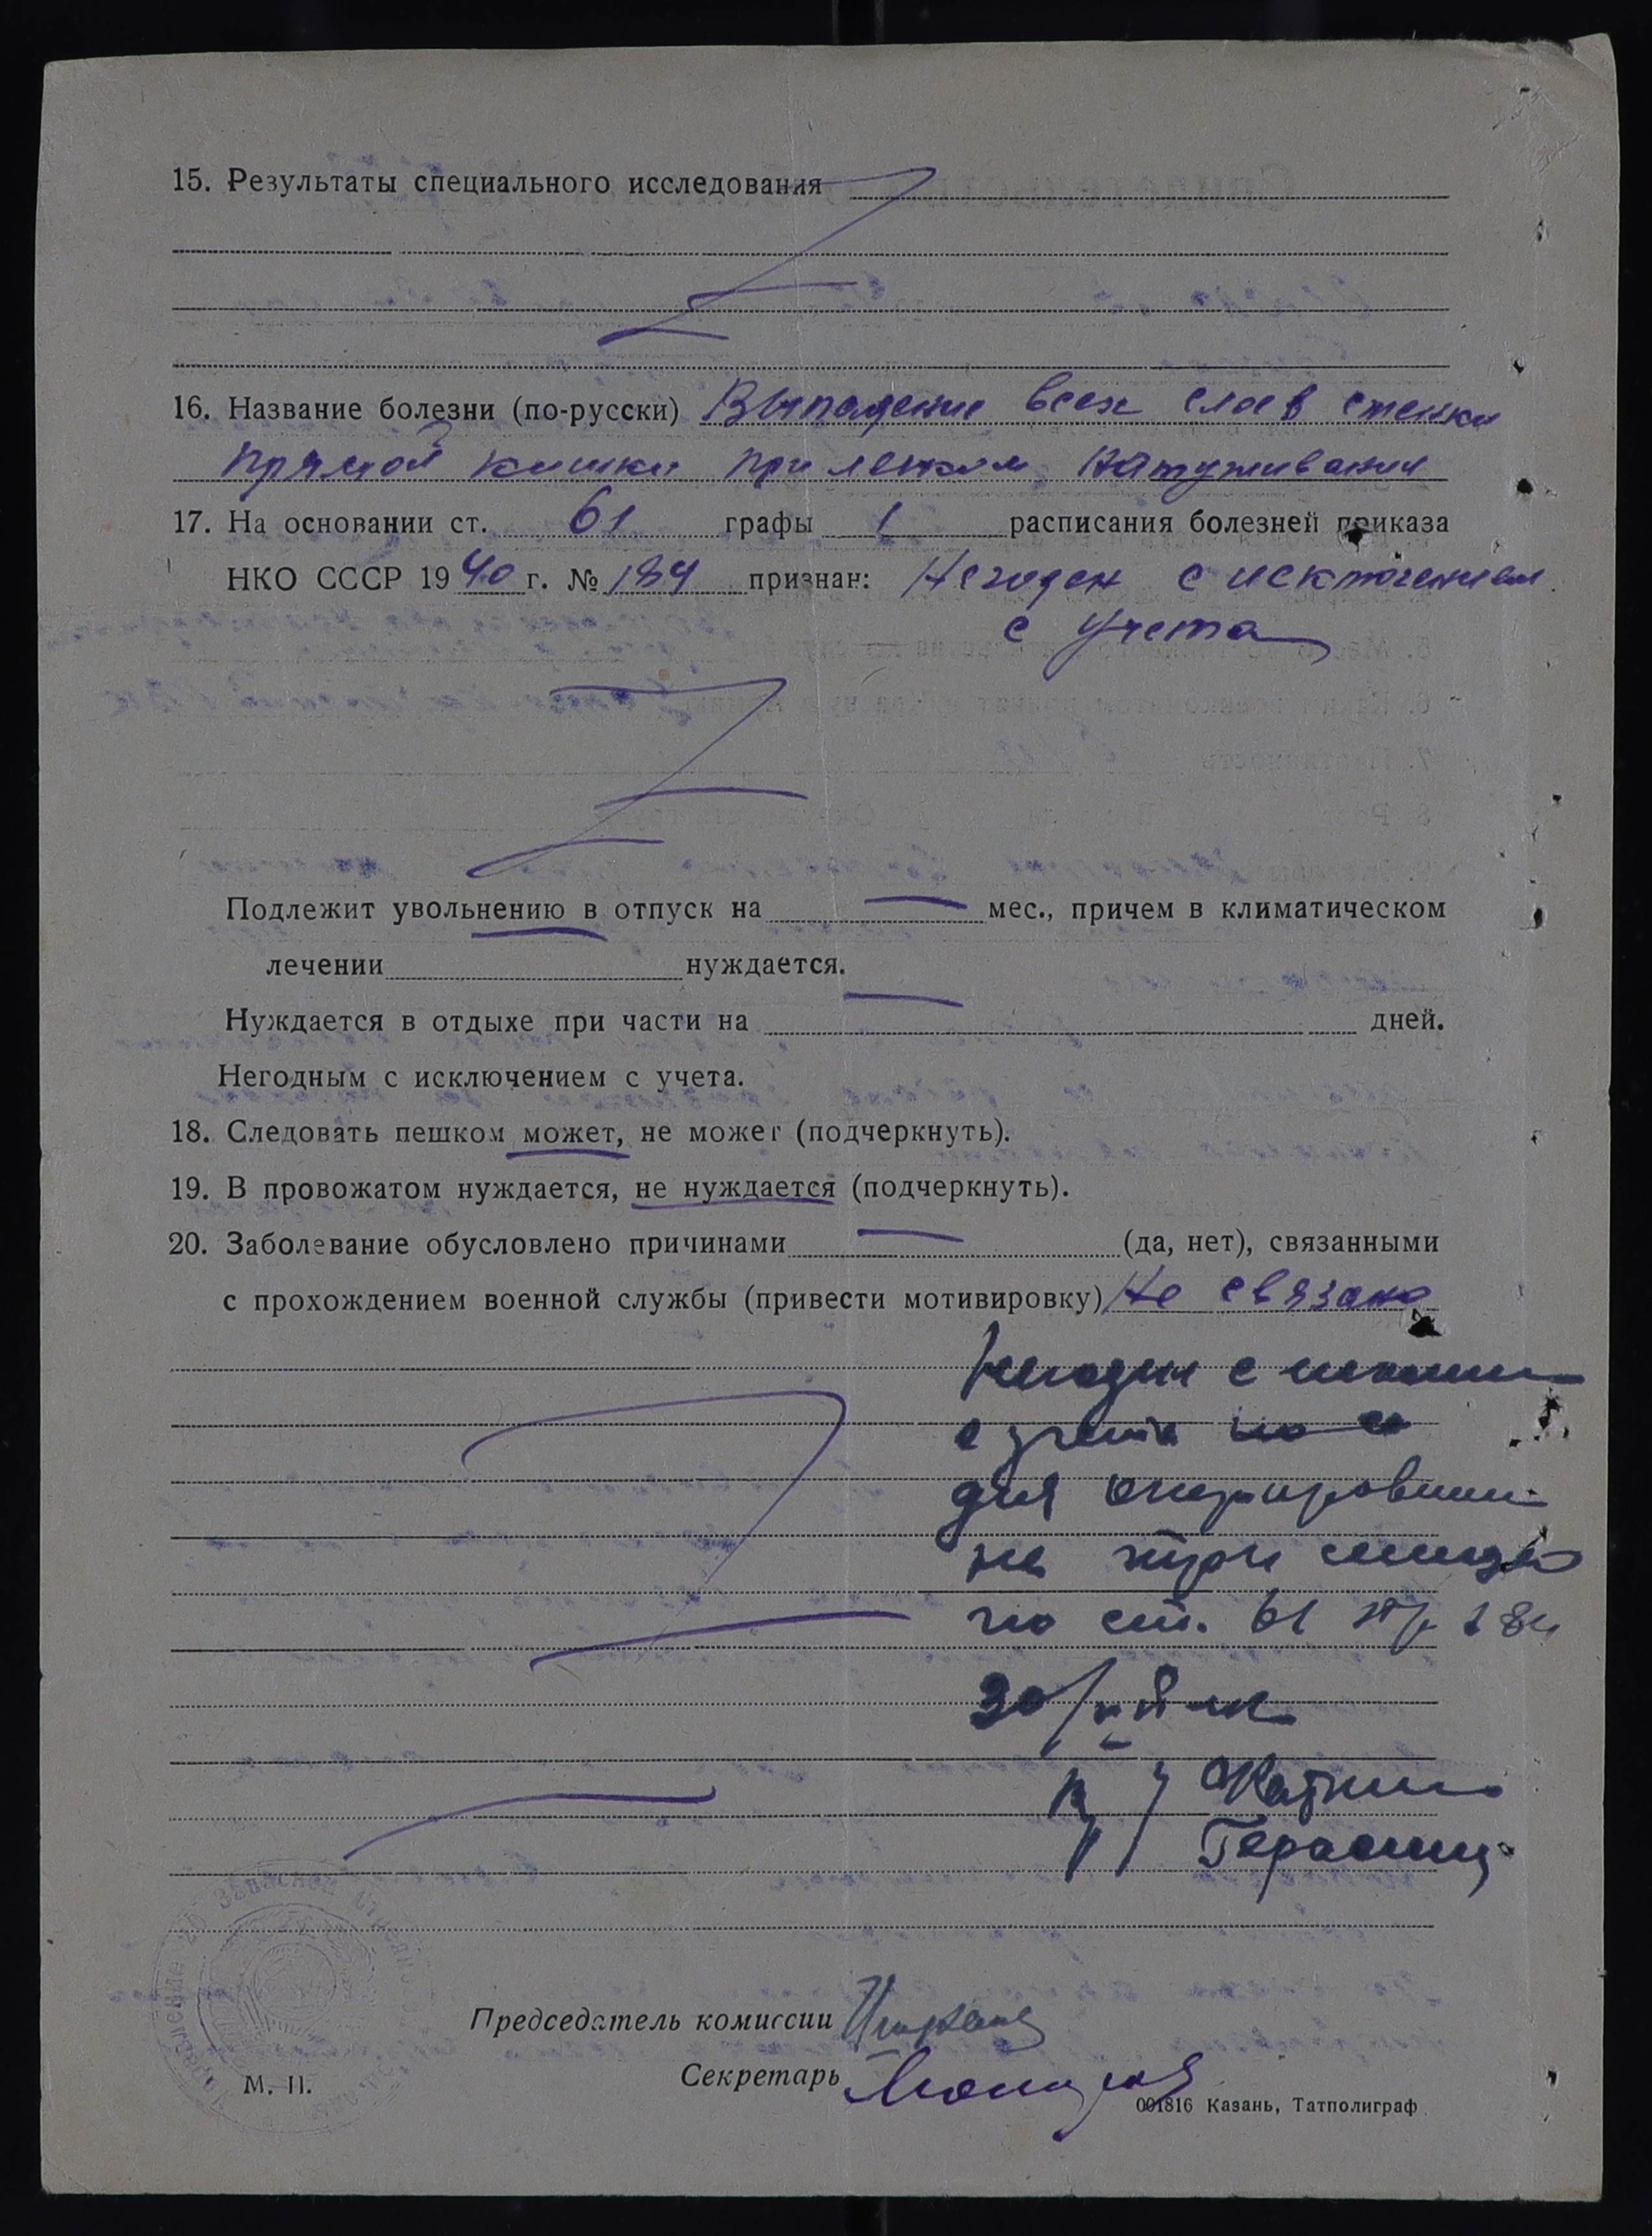 15. Результаты специального исследования
16. Название болезни (по-русски) Выпадение всех слоев стенки
прямой кишки при легком натуживании
17. На основании ст. 61 графы 1 расписания болезней приказа
НКО СССР 1940 г. № 184 признан: Негоден с исключением
с учета
Подлежит увольнению в отпуск на — мес., причем в климатическом
лечении нуждается.
Нуждается в отдыхе при части на — дней.
Негодным с исключением с учета.
18. Следовать пешком может, не может (подчеркнуть).
19. В провожатом нуждается, не нуждается (подчеркнуть).
20. Заболевание обусловлено причинами — (да, нет), связанными
с прохождением военной службы (привести мотивировку) Не связано
Негоден с
с учета
для
на
по ст. 61 пр 184
30/
Председатель комиссии
Секретарь
М. П.
001816 Казань, Татполиграф